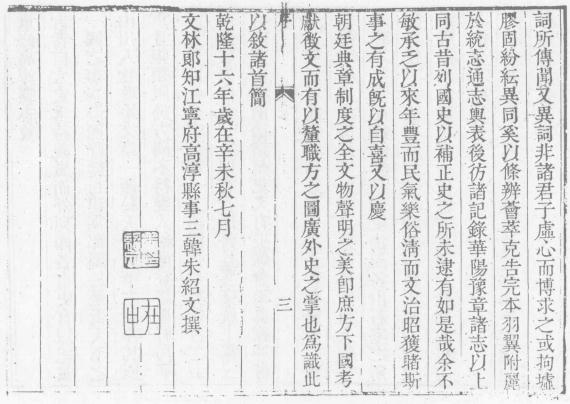 詞所傳聞又異詞非諸君子虛心而博求之或拘墟
膠固紛紜異同奚以條辨薈萃克告完本羽翼附麗
於統志通志輿表後彷諸記錄華陽豫章諸志以上
同古昔列國史以補正史之所未逮有如是哉余不
敏承乏以來年豐而民氣樂俗淸而文治昭獲睹斯
事之有成旣以自喜又以慶
朝廷典章制度之全文物聲明之美卽庶方下國考
獻徵文而有以釐職方之圖廣外史之掌也爲識此
序
三
以敘諸首簡
乾隆十六年歲在辛未秋七月
文林郞知江寧府高淳縣事三韓朱紹文撰